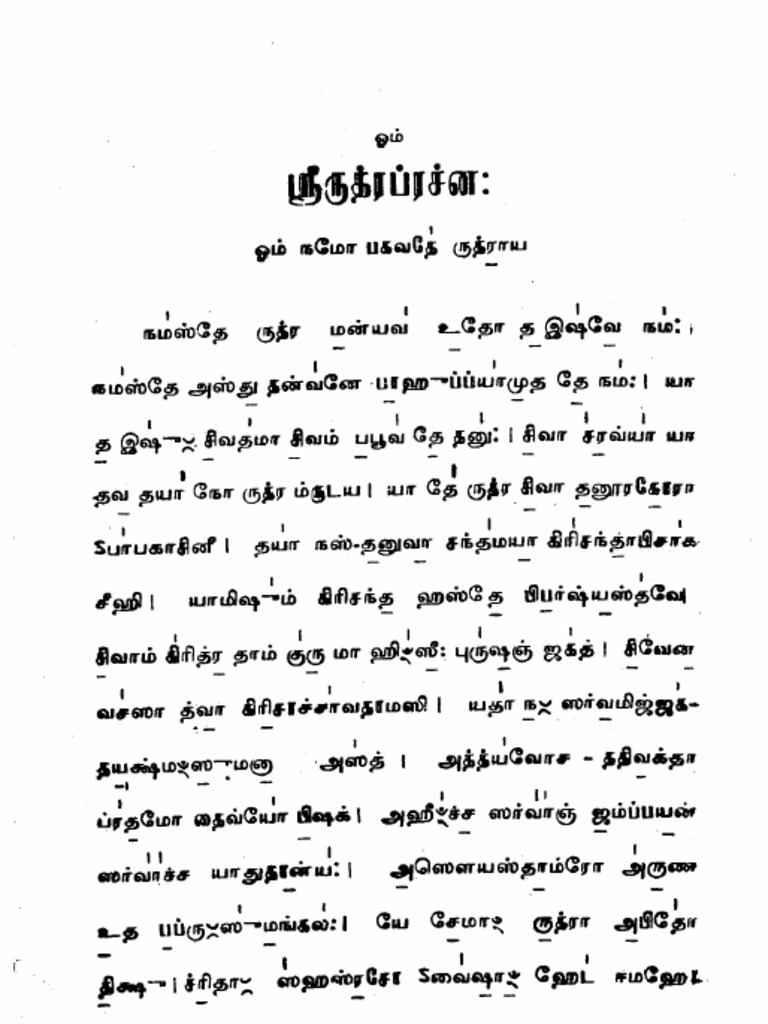 ஓம்
ஸ்ரீருத்ரப்ரச்ன:
ஓம் நமோ பகவதே ருத்ராய
நமஸ்தே ருத்ர மன்யவ உதோ த இஷவே நம: ।
நமஸ்தே அஸ்து தன்வனே பாஹுப்ப்யாமுத தே நம: । யா
த இஷு: சிவதமா சிவம் பபூவ தே தனு: । சிவா சரவ்யா யா
தவ தயா நோ ருத்ர ம்ருடய । யா தே ருத்ர சிவா தனூரகோரா
ऽபாபகாசினீ । தயா நஸ்-தனுவா சந்தமயா கிரிசந்தாபிசாக
சீஹி । யாமிஷும் கிரிசந்த ஹஸ்தே பிபர்ஷ்யஸ்தவே।
சிவாம் கிரித்ர தாம் குரு மா ஹிꣳஸீ: புருஷஞ் ஜகத் । சிவேன
வசஸா த்வா கிரிசாச்சாவதாமஸி । யதா ந: ஸர்வமிஜ்ஜக-
தயக்ஷ்மꣳஸுமனா அஸத் । அத்த்யவோச - ததிவக்தா
ப்ரதமோ தைவ்யோ பிஷக் । அஹீꣳச்ச ஸர்வாஞ் ஜம்ப்பயன்
ஸர்வாச்ச யாதுதான்ய: । அஸௌயஸ்தாம்ரோ அருண
உத பப்ரு:ஸுமங்கல: । யே சேமாꣳ ருத்ரா அபிதோ
திக்ஷு । ச்ரிதா: ஸஹஸ்ரசோ ऽவைஷாꣳ ஹேட ஈமஹே